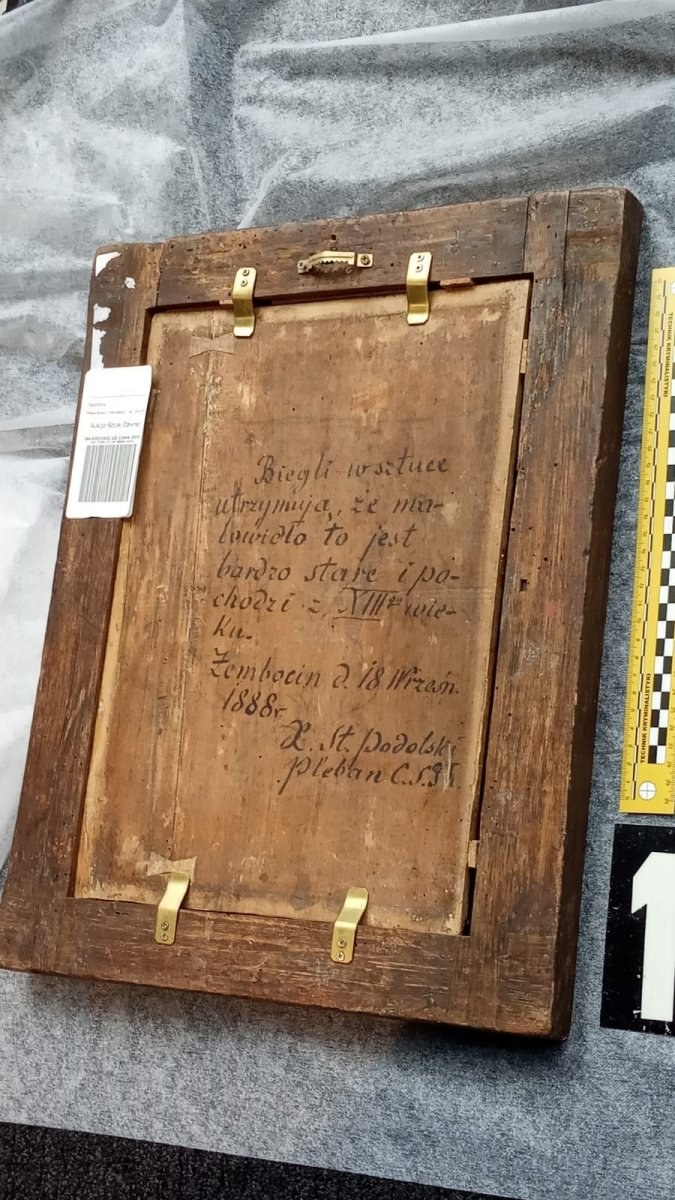 Biegli w sztuce
utrzymują, że ma-
lowidło to jest
bardzo stare i po-
chodzi z XIIIgo wie-
ku.
Zembocin d. 18 Wrześn.
1888r.
X. St. Podolski
Pleban
TECHNIK KRYMINALISTYKI
TECHNIK KRYMINALISTYKI
1